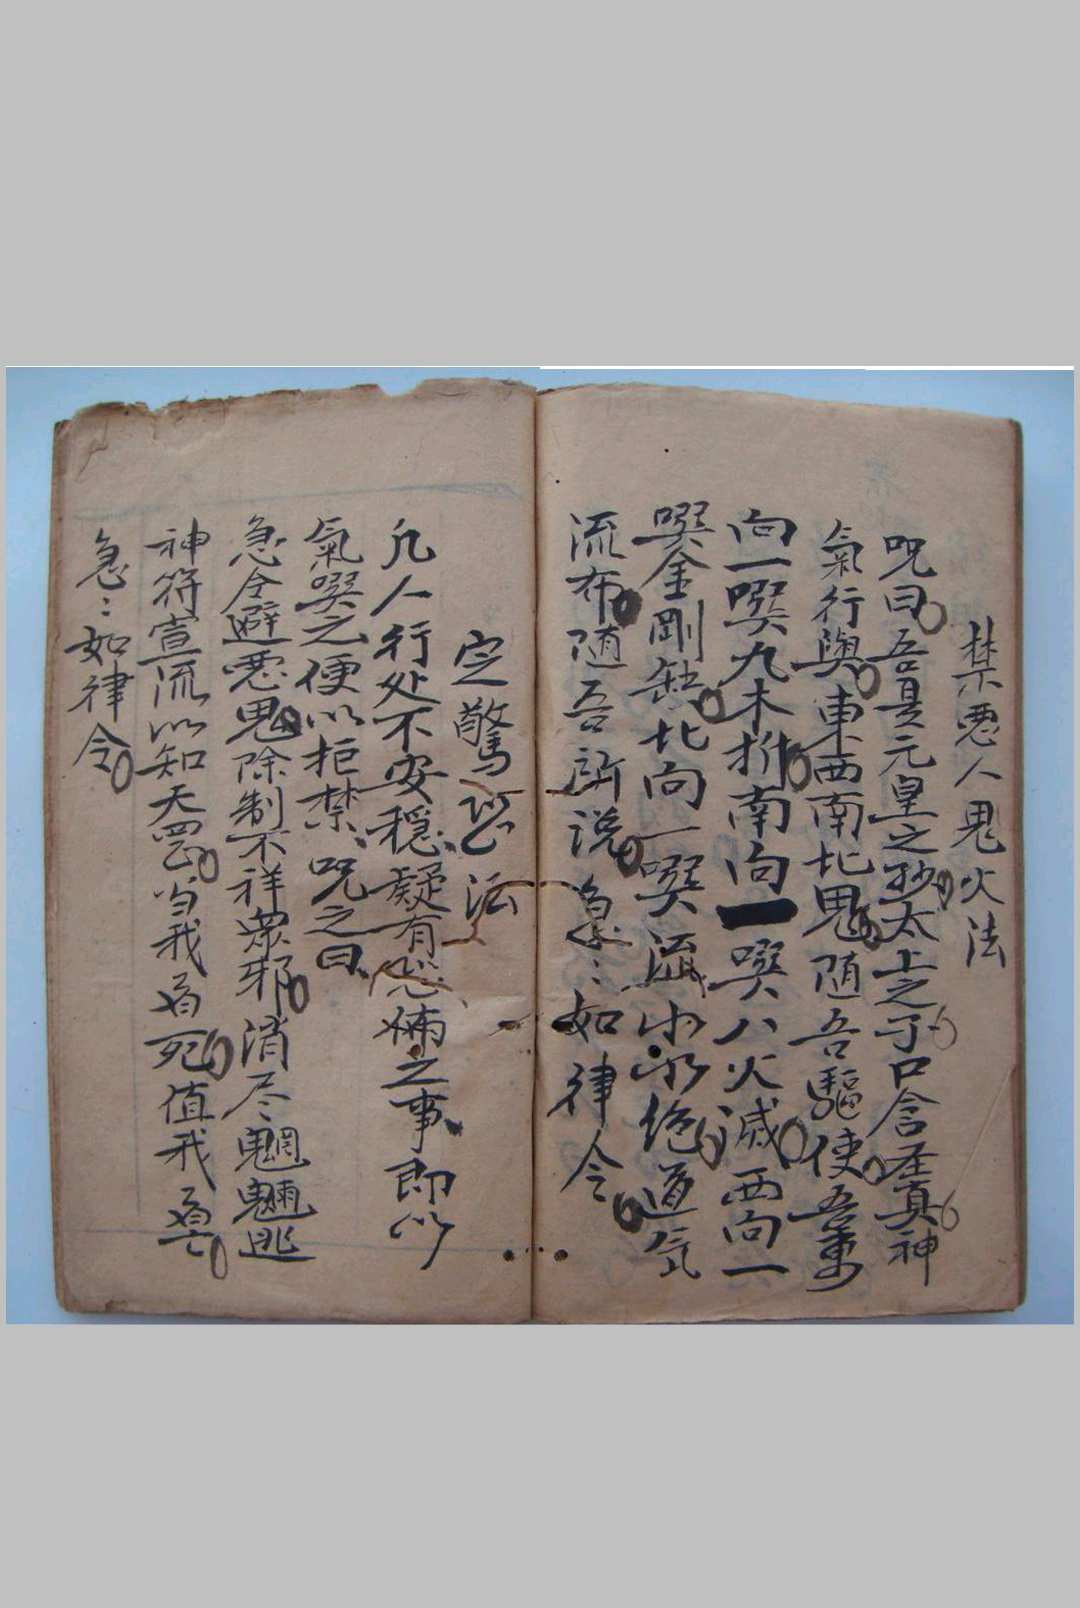 禁恶人鬼火法
咒曰吾是元皇之孙太上之子口含圣真神
氣行與東西南北鬼随吾驅使吾東
向一噀九木折南向一噀八火滅西向一
噀金剛缺北向一噀流水绝道气
流布随吾所说急〻如律令
定驚恐法
凡人行处不安穩疑有恐怖之事即以
氣噀之便以拒禁咒之曰
急令避恶鬼除制不祥眾邪消尽魍魎逃
神符宣流以知天罡当我者死值我者亡
急〻如律令